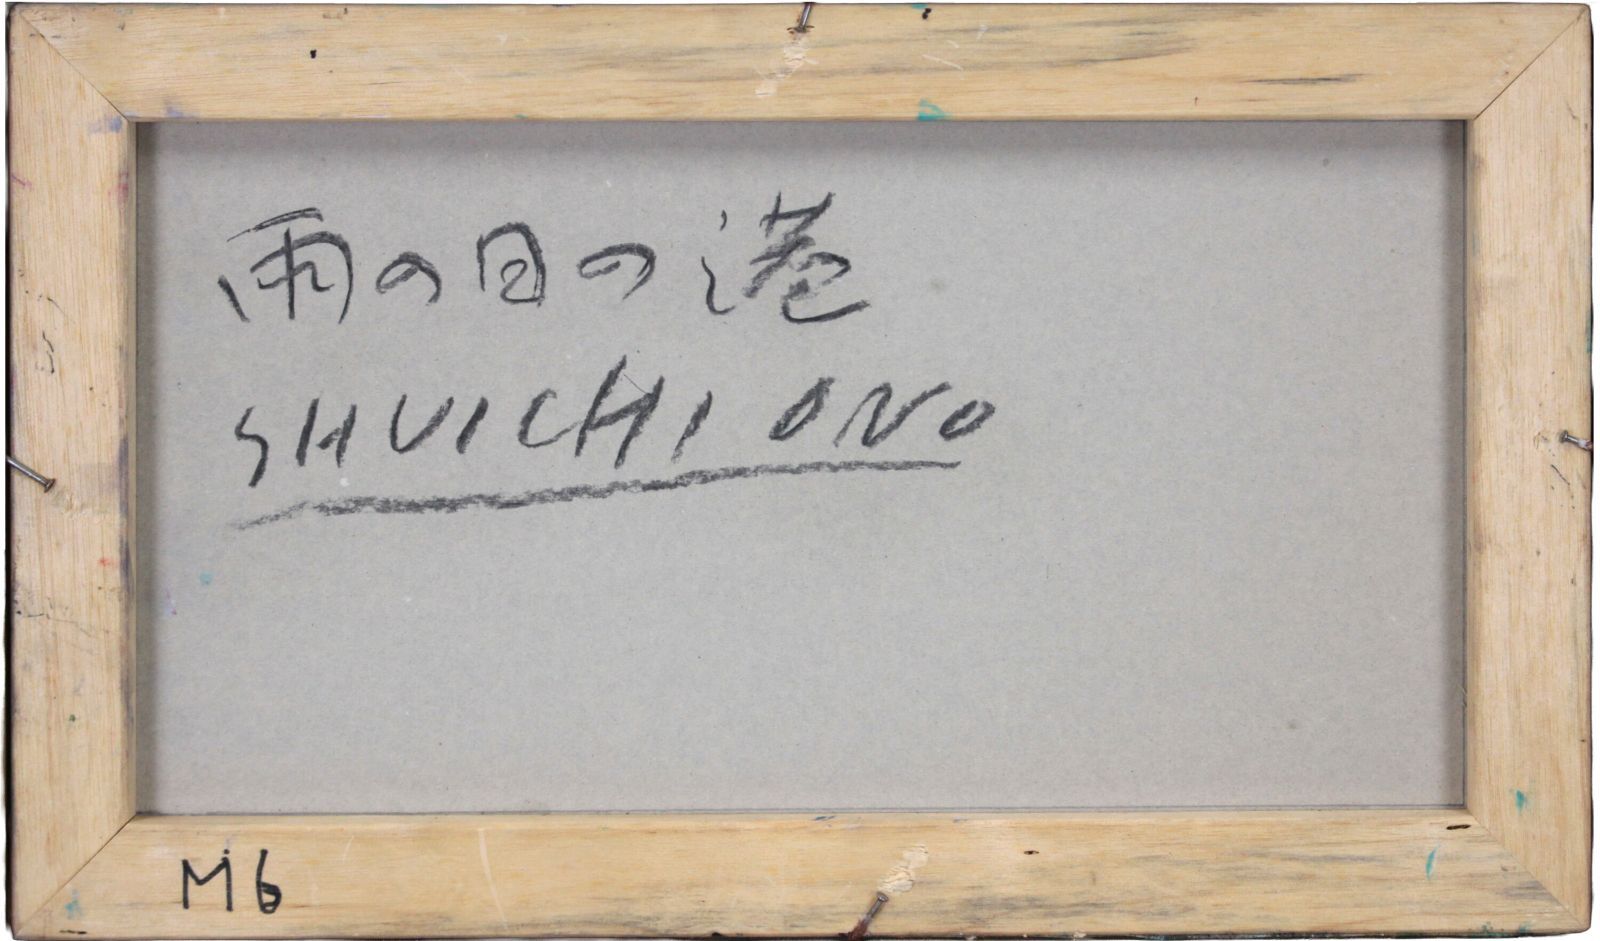 雨の日の港
SHUICHI ONO
M6